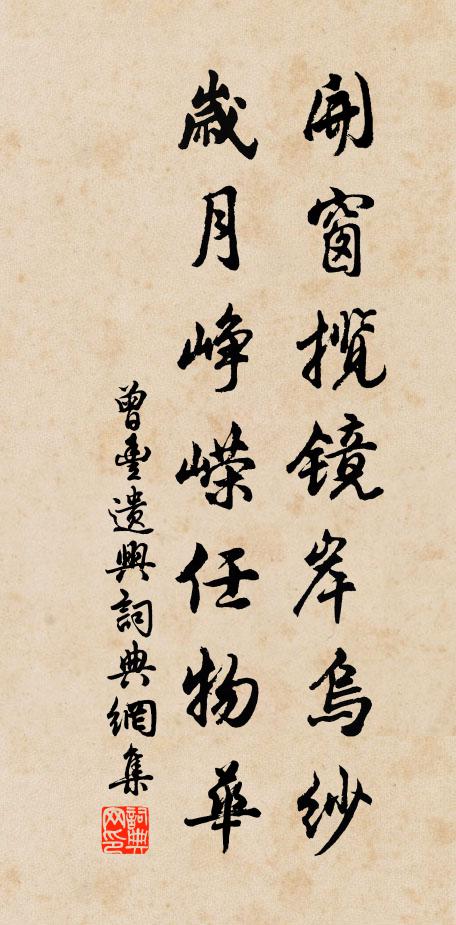 開窗攬镜岸烏紗
歲月峥嶸任物華
曾豐遺興詞典網集
詞典網印